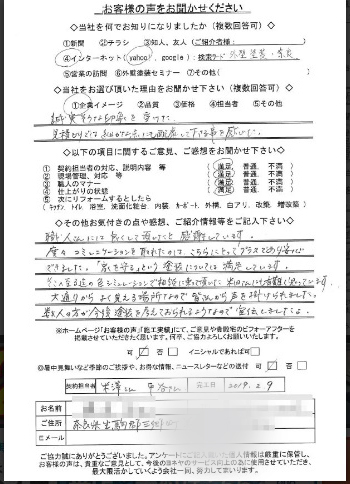 お客様の声をお聞かせください
◇当社を何でお知りになりましたか（複数回答可）
①新聞 ②チラシ ③知人、友人（ご紹介者様： ）
④インターネット（yahoo, google）：検索ワード 外壁塗装・奈良
⑤営業の訪問 ⑥外壁塗装セミナー ⑦その他（ ）
◇当社をお選び頂いた理由をお聞かせ下さい（複数回答可）
①企業イメージ ②品質 ③価格 ④担当者 ⑤その他
誠実そうな印象を受けた。
◇以下の項目に関するご意見、ご感想をお聞かせ下さい
① 契約担当者の対応、説明内容 等 （満足 普通、不満）
② 現場管理、対応 等 （満足 普通、不満）
③ 職人のマナー （満足 普通、不満）
④ 仕上がりの状態 （満足 普通、不満）
⑤ 次にリフォームするとしたら
（キッチン、トイレ、浴室、洗面化粧台、内装、カーポート、外構、白アリ、改築、増改築）
◇その他お気付きの点や感想、ご紹介情報等をご記入下さい
職人さんには良くして頂いたと感謝しています。
度々コミュニケーションを取れたのは、こちらにとってプラスであり安心
できました。「家を守る」という塗装については満足しています。
大通りからよく見える場所ですので
数人の方が今後塗装を考えておられるようですので宣伝しましたよ。
※ホームページ「お客様の声」「施工実績」にて、ご意見や貴殿宅のビフォーアフターを
掲載させていただきたく思います。何卒、ご協力よろしくお願いいたします。
可 否 イニシャルであれば可
※暑中見舞いなど季節のご挨拶や、お得な情報、ニュースレターなどの送付 可 否
契約担当者 米澤さん 完工日 2019.2.9
お名前
ご住所 奈良県生駒郡三郷町
Eメール
ご協力誠にありがとうございました。アンケートにご記入頂いた個人情報は厳重に保管し、
お客様の声は、貴重なご意見として、今後の
最大限活かしていくよう会社一同、努力してまいります。